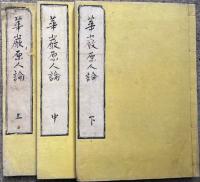 華嚴原人論 下
華嚴原人論 中
華嚴原人論 上